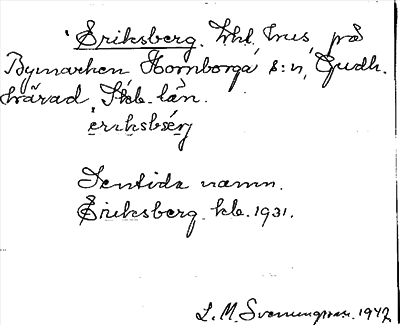 Eriksberg. hus på
Bymarken Hornborga s:n, Gudh.
härad, Skb. län.
eriksbærj
Sentida namn.
Eriksberg kb. 1931.
L. M. Svenungsson. 1942